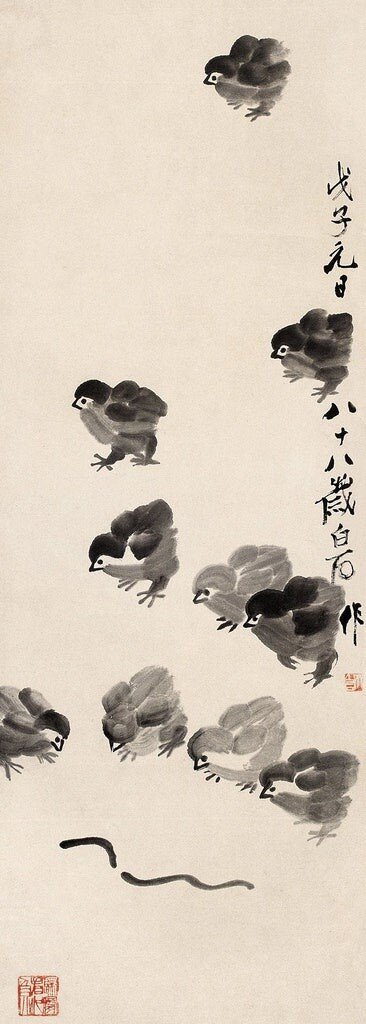 戊子元日
八十八歲白石作